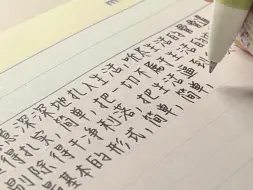 意深深地扎入生活,吮尽生活的
得扎实,简单,把一切不属于生活的
剔除得干净利落,把生活逼到
最基本的形式,简单,简单,